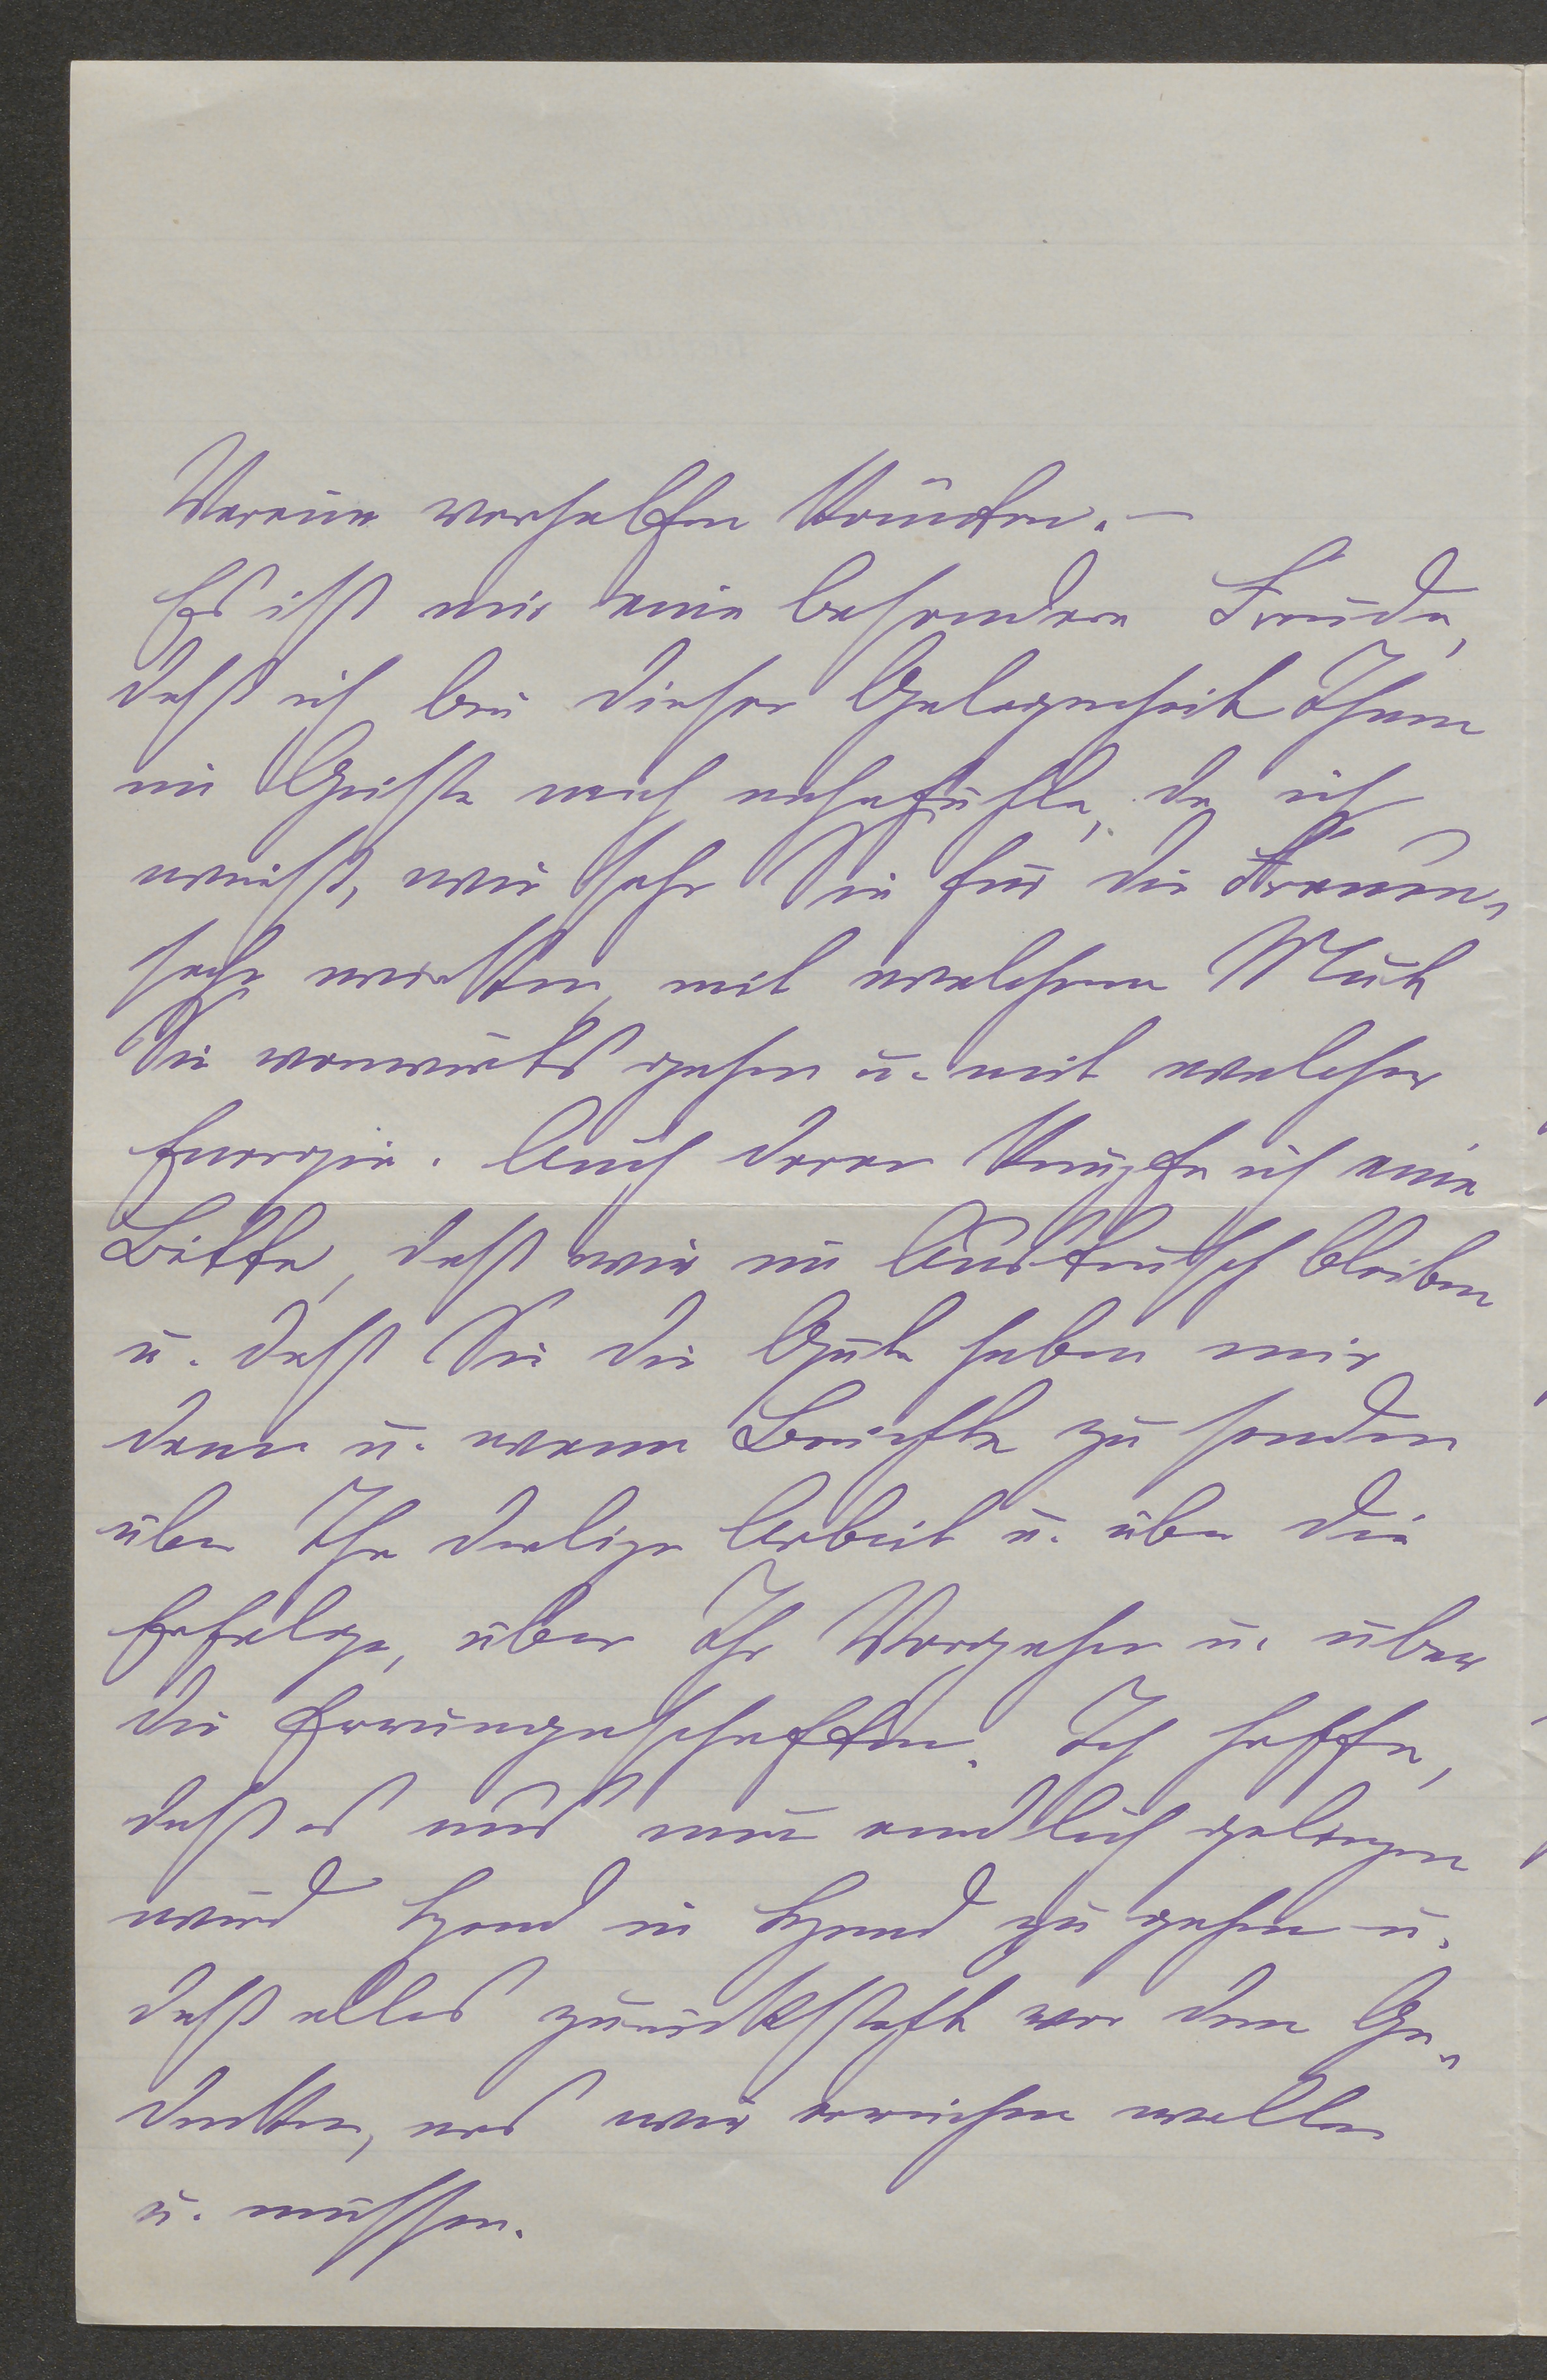 Vereine verhelfen könnten. –
Es ist mir eine besondere Freude,
daß ich bei dieser Gelegenheit Ihnen
im Geiste mich nahefühle, da ich
weiß, wie sehr Sie für die Frauen-
sache wirken, mit welchem Muth
Sie vorwärts gehen u. mit welcher
Energie. Auch daran knüpfe ich eine
Bitte, daß wir im Austausch bleiben
u. daß Sie die Güte haben mir
dann u. wann Berichte zu senden
über Ihre dortige Arbeit u. über die
Erfolge, über Ihr Vorgehen u. über
die Errungenschaften. Ich hoffe,
daß es uns nun endlich gelingen
wird Hand in Hand zu gehen u.
daß alles zurücksteht vor dem Ge-
danken, was wir erreichen wollen
u. müssen.